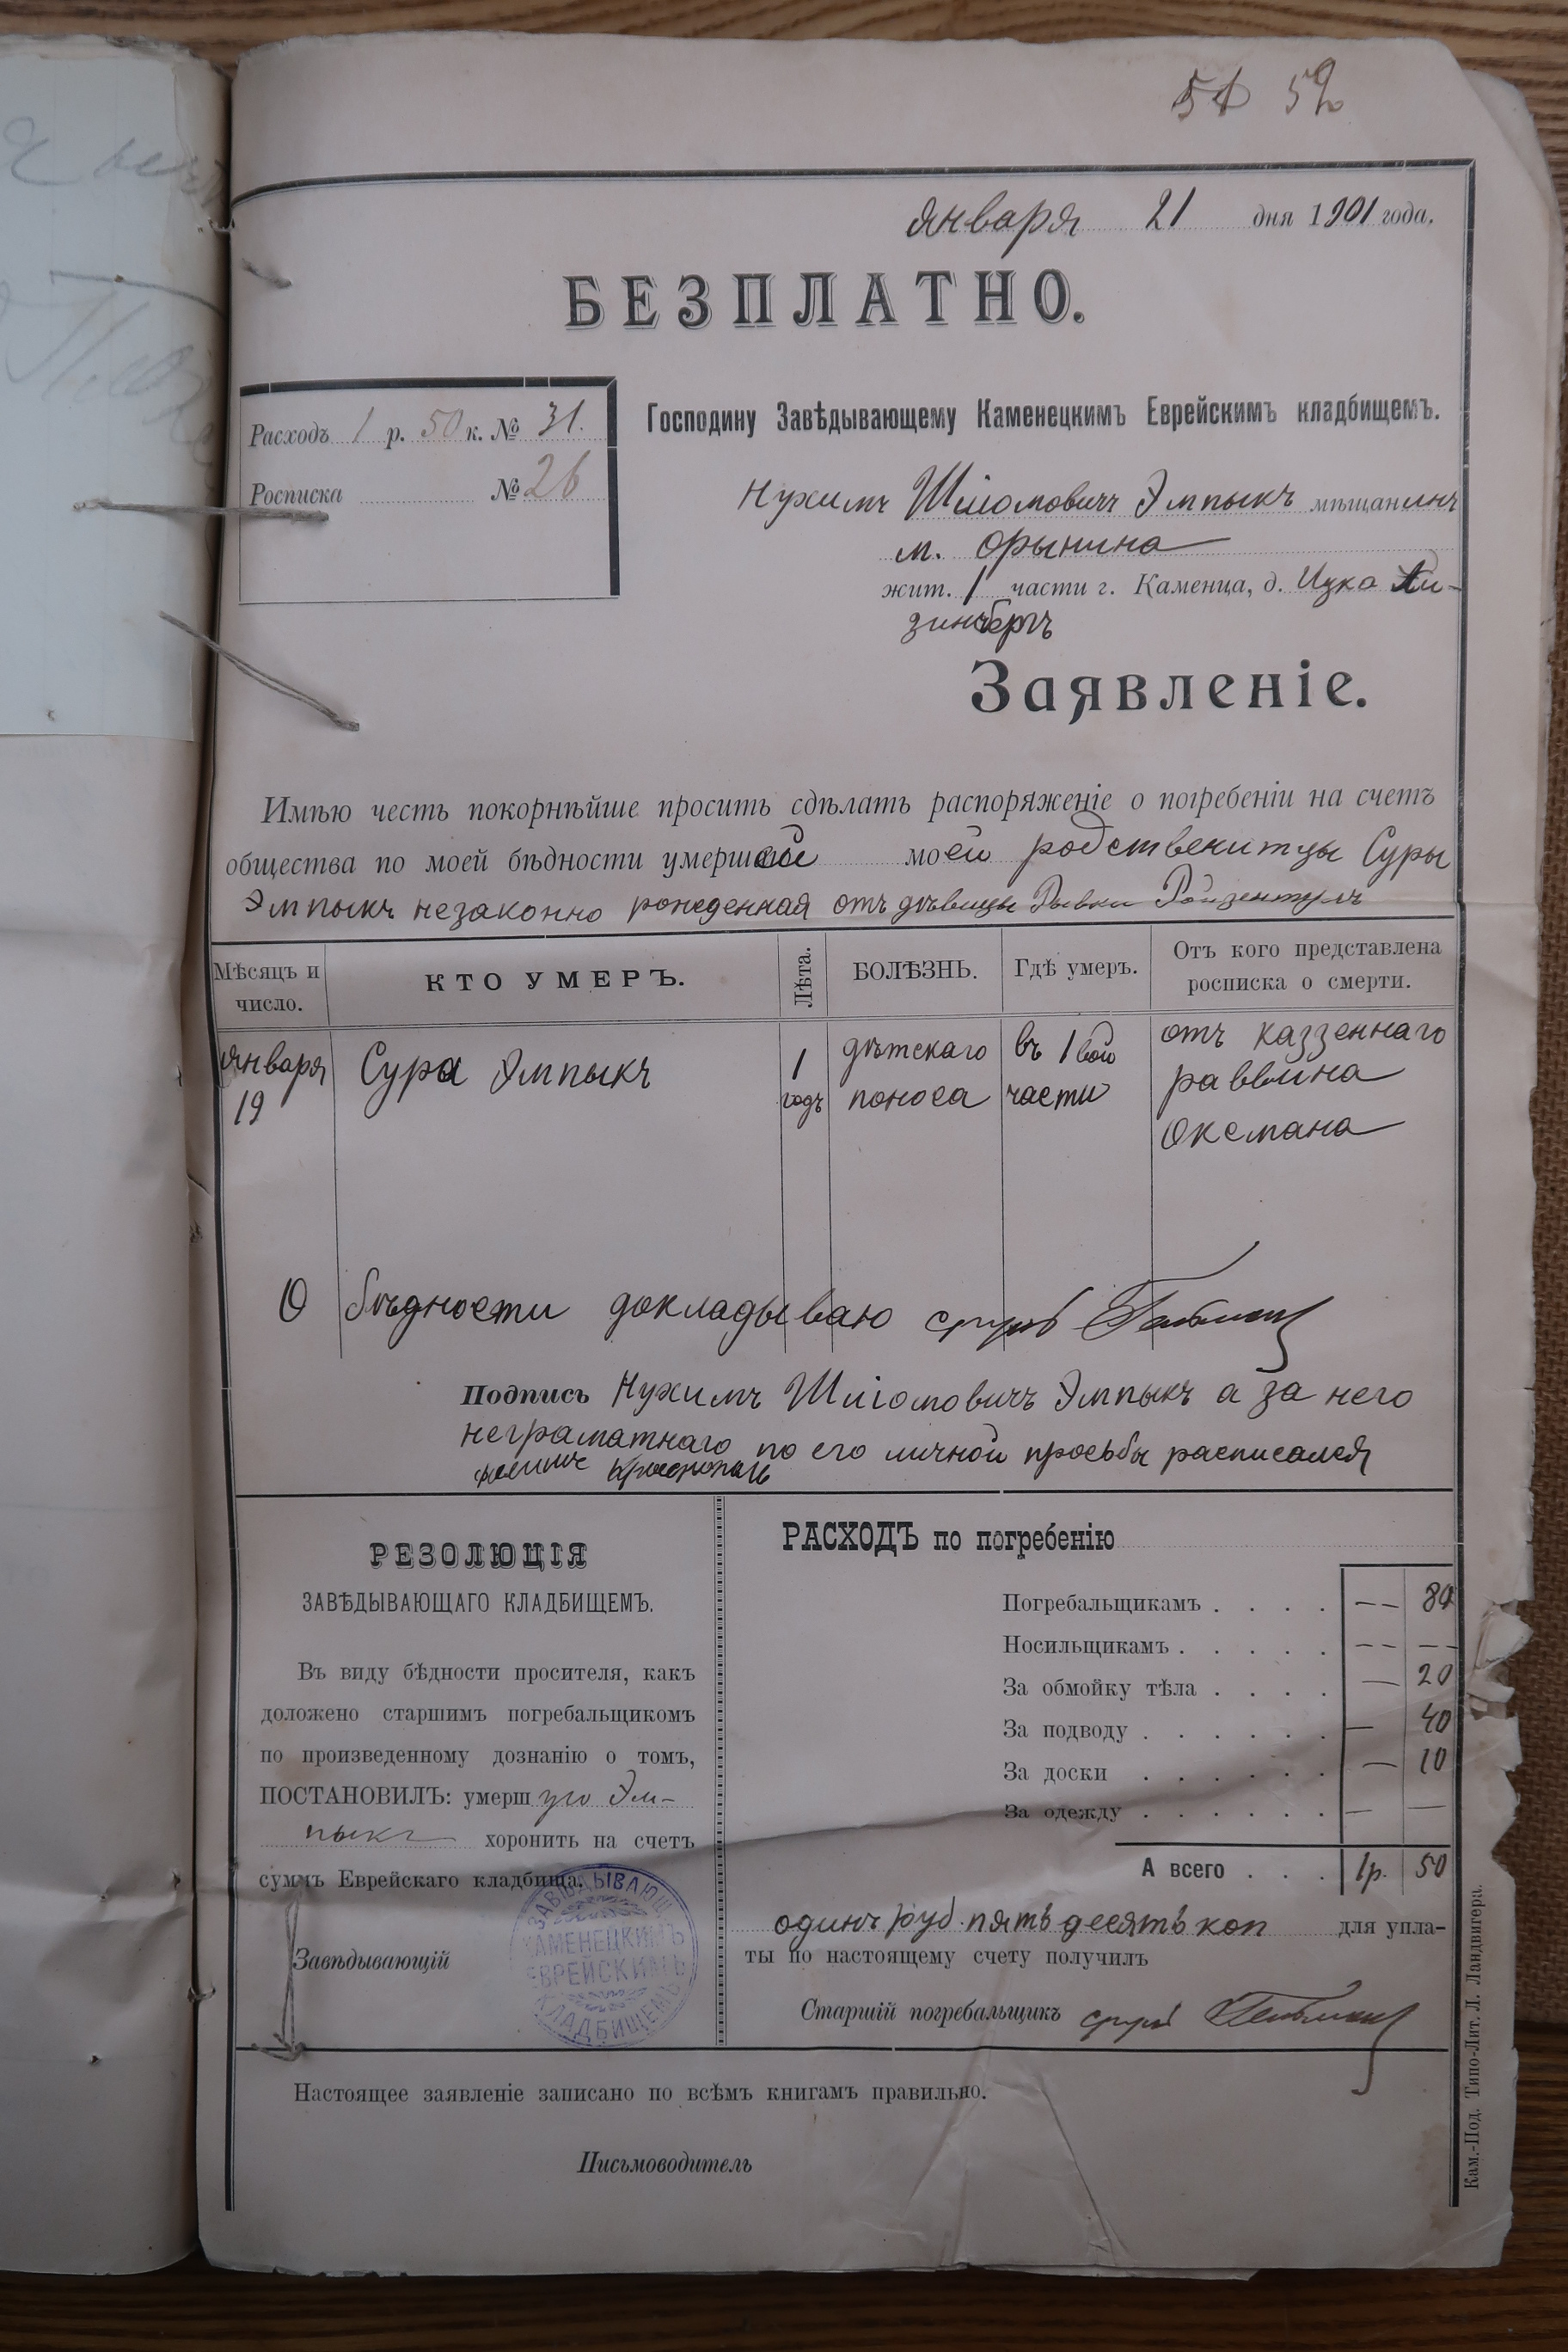 52
января 21 дня 1901 года.
БЕЗПЛАТНО.
Расходъ 1 р. 50 к. № 31.
Росписка № 26
Господину Завѣдывающему Каменецкимъ Еврейскимъ кладбищемъ.
Нухимъ Шліомовичъ Эмпыкъ мѣщанинъ
м. Орынина
жит. 1 части г. Каменца, д. Ицко
зинбергъ
Заявленіе.
Имѣю честь покорнѣйше просить сдѣлать распоряженіе о погребеніи на счетъ
общества по моей бѣдности умершей моей родственитцы Суры
Эмпыкъ незаконно рожденная отъ дѣвицы Рывки Ройзентулъ
Мѣсяцъ и число. КТО УМЕРЪ. Лѣта. БОЛѢЗНЬ. Гдѣ умеръ. Отъ кого представлена росписка о смерти.
января 19 Сура Эмпыкъ 1 годъ дѣтскаго поноса въ 1вой части отъ каззеннаго раввина Оксмана
О бѣдности докладываю
Подпись Нухимъ Шліомовичъ Эмпыкъ а за него
неграматнаго по его личной просьбы расписался
РЕЗОЛЮЦІЯ
ЗАВѢДЫВАЮЩАГО КЛАДБИЩЕМЪ.
Въ виду бѣдности просителя, какъ
доложено старшимъ погребальщикомъ
по произведенному дознанію о томъ,
ПОСТАНОВИЛЪ: умерш ую Эм-
пыкъ хоронить на счетъ
суммъ Еврейскаго кладбища.
Завѣдывающій
ЗАВѢДЫВАЮЩ.
КАМЕНЕЦКИМЪ
ЕВРЕЙСКИМЪ
КЛАДБИЩЕМЪ
РАСХОДЪ по погребенію
Погребальщикамъ . . . . — — 80
Носильщикамъ . . . . . — — — —
За обмойку тѣла . . . . — 20
За подводу . . . . . . — 40
За доски . . . . . . — 10
За одежду . . . . . . — —
А всего . . . 1р. 50
одинъ руб. пятьдесятъ коп для упла-
ты по настоящему счету получилъ
Старшій погребальщикъ
Настоящее заявленіе записано по всѣмъ книгамъ правильно.
Письмоводитель
Кам.-Под. Типо-Лит. Л. Ландвигера.